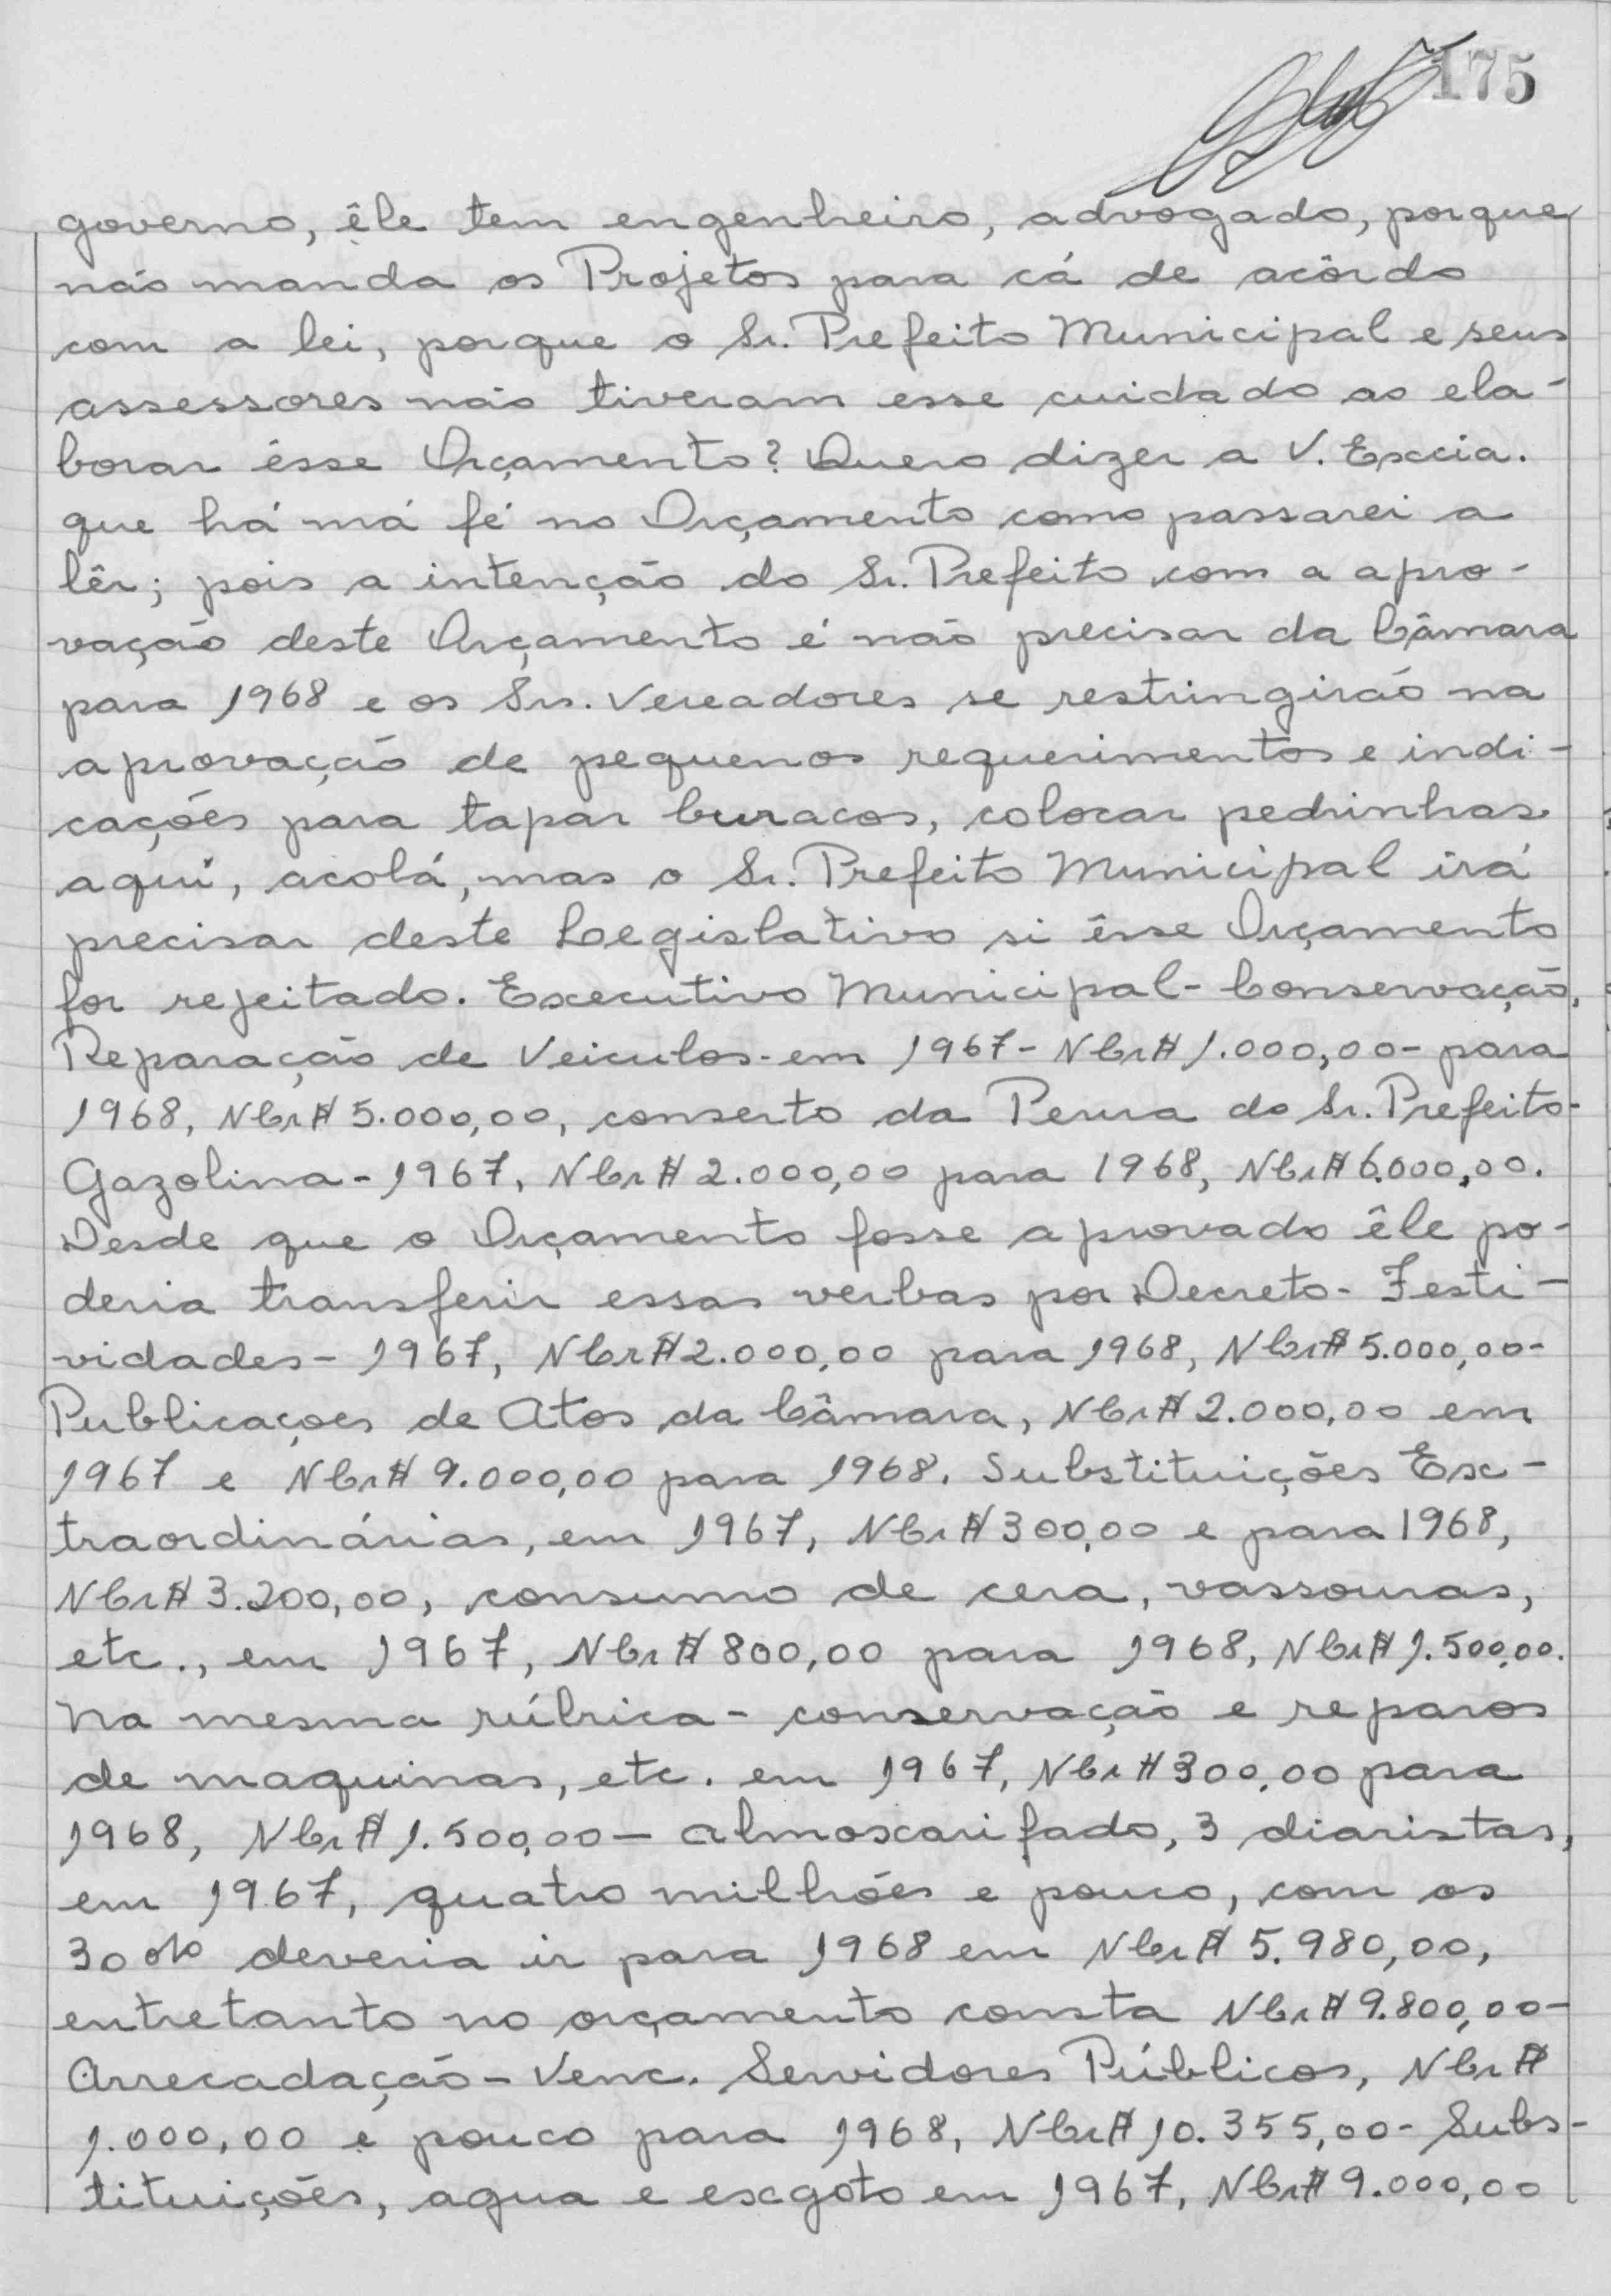 175
governo, êle tem engenheiro, advogado, porque
não manda os Projetos para cá de acôrdo
com a lei, porque o Sr. Prefeito Municipal e seus
assessores não tiveram esse cuidado ao ela-
borar êsse Orçamento? Quero dizer a V. Excia.
que há má fé no Orçamento como passarei a
lêr; pois a intenção do Sr. Prefeito com a apro-
vação deste Orçamento é não precisar da Câmara
para 1968 e os Srs. Vereadores se restringirão na
aprovação de pequenos requerimentos e indi-
cações para tapar buracos, colocar pedrinhas
aqui, acolá, mas o Sr. Prefeito Municipal irá
precisar deste Legislativo si êsse Orçamento
for rejeitado. Executivo Municipal - Conservação,
Reparação de Veiculos - em 1967 - NCr$ 1.000,00 - para
1968, NCr$ 5.000,00, conserto da Perua do Sr. Prefeito -
Gazolina - 1967, NCr$ 2.000,00 para 1968, NCr$ 6.000,00.
Desde que o Orçamento fosse aprovado êle po-
deria transferir essas verbas por Decreto - Festi-
vidades - 1967, NCr$ 2.000,00 para 1968, NCr$ 5.000,00 -
Publicaçoes de Atos da Câmara, NCr$ 2.000,00 em
1967 e NCr$ 9.000,00 para 1968. Substituições Ex-
traordinárias, em 1967, NCr$ 300,00 e para 1968,
NCr$ 3.200,00, consumo de cera, vassouras,
etc., em 1967, NCr$ 800,00 para 1968, NCr$ 1.500,00.
Na mesma rúbrica - conservação e reparos
de maquinas, etc. em 1967, NCr$ 300,00 para
1968, NCr$ 1.500,00 - almoxarifado, 3 diaristas,
em 1967, quatro milhões e pouco, com os
30 o/o deveria ir para 1968 em NCr$ 5.980,00,
entretanto no orçamento consta NCr$ 9.800,00 -
Arrecadação - Venc. Servidores Públicos, NCr$
1.000,00 e pouco para 1968, NCr$ 10.355,00 - Subs-
tituições, agua e exgoto em 1967, NCr$ 9.000,00